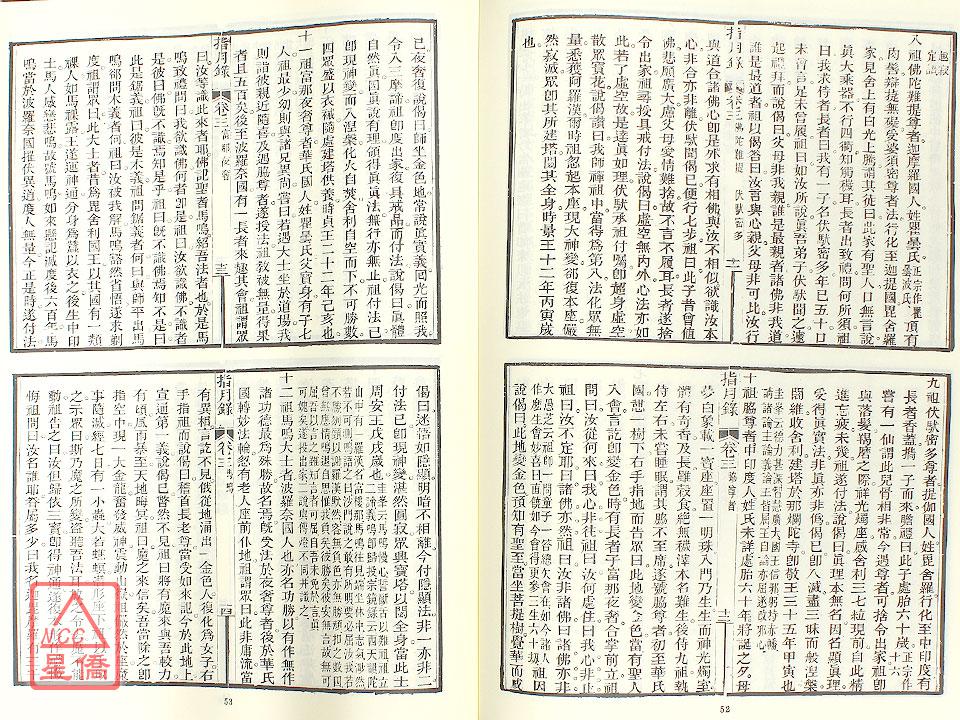 八祖佛陀難提尊者迦摩羅國人姓瞿曇氏正宗作瞿波氏頂有
肉髻辯捷無礙受婆須密尊者法行化至迦提國毘舍羅
家見舍上有白光上騰謂其徒曰此家有聖人口無言說
真大乘器不行四衢知觸穢耳長者出致禮問何所須祖
曰我求侍者長者曰我有一子名伏馱密多年已五十口
未曾言足未曾履祖曰如汝所說真吾弟子伏馱聞之遽
起禮拜而說偈曰父母非我親誰是最親者諸佛非我道
誰是最道者祖以偈答曰汝言與心親父母非可比汝行
指月錄 卷三
與道合諸佛心卽是外求有相佛與汝不相似欲識汝本
心非合亦非離伏馱聞偈已便行七步祖曰此子昔曾值
佛悲願廣大慮父母愛情難捨故不言不履耳長者遂捨
令出家祖尋授具戒付法說偈曰虛空無內外心法亦如
此若了虛空故是達真如理伏馱承祖付囑卽超身虛空
散眾寶花說偈讚曰我師禪祖中當得為第八法化眾無
量悉獲阿羅漢爾時祖忽起本座現大神變卻復本座儼
然寂滅眾卽其所建塔閟其全身時景王十二年丙寅歲
也
九祖伏馱密多尊者提伽國人姓毘舍羅行化至中印度有
長者香蓋攜一子而來瞻禮曰此子處胎六十歲
嘗有一仙謂此兒骨相非常今遇尊者可捨令出家祖卽
與落髮羯磨之際祥光燭座感舍利三七粒現前自此精
進忘疲未幾祖遂付法說偈曰真理本無名因名顯真理
受得真實法非真亦非偽偈已卽入滅盡三昧而般涅槃
闍維收舍利建塔於那爛陀寺卽敬王三十五年甲寅也
十祖脇尊者中印度人姓氏未詳處胎六十年將誕之夕母
指月錄 卷三 脇尊者
夢白象載一寶座座置一明珠入門乃生生而神光燭室
體有奇香及長雖穀食絕無穢滓本名難生後侍九祖執
侍左右未嘗睡眠謂其脇不至席遂號脇尊者初至華氏
國憩一樹下右手指地而告眾曰此地變金色當有聖人
入會言訖卽變金色時有長者子富那夜奢合掌前立祖
問曰汝從何來曰我心非往祖曰汝何處住曰我心非止
祖曰汝不定耶曰諸佛亦然祖曰汝非諸佛曰諸佛亦非
祖因說偈曰此地變金色預知有聖至當坐菩提樹覺華而成
52
已夜奢復說偈曰師坐金色地常說真實義回光而照我
令入三摩諦祖卽度出家復具戒品而付法說偈曰真體
自然真因真說有理領得真真法無行亦無止祖付法已
卽現神變而入涅槃化火自焚舍利自空而下不可勝數
四眾盛以衣祴隨處建塔供養時貞王二十二年己亥也
十一祖富那夜奢尊者華氏國人姓瞿曇氏父寶身有子七
人祖最少幼則與諸兄異尚嘗曰若遇大士坐於道場我
則詣彼親近隨喜及遇脇尊者遂授法祖敎被無量得果
者且五百矣後至波羅奈國有一長者來趣其會祖謂眾
指月錄 卷三 富那夜奢
曰汝等識此來者耶佛記聖者馬鳴紹吾法者也於是馬
鳴致禮問曰我欲識佛何者卽是祖曰汝欲識佛不識者
是曰佛旣不識焉知是乎祖曰旣不識佛焉知不是曰
此是鋸義祖曰彼是木義祖問鋸義者何曰與師平出馬
鳴卻問木義者何祖曰汝被我解馬鳴豁然省悟遂求剃
度祖謂眾曰此大士者昔為毘舍利國王以其國有一類
祼人如馬祼露王遂運神通分身為蠶以衣之後生中印
土馬人感戀悲鳴故號馬鳴如來懸記滅度後六百年馬
鳴當於波羅奈國摧伏異道度人無量今正是時遂付法
偈曰迷悟如隱顯明暗不相離今付隱顯法非一亦非二
付法已卽現神變湛然圓寂眾興寶塔以閟全身當此土
周安王戊戌歲也
十二祖馬鳴大士者波羅奈國人也亦名功勝以有作無作
諸功德最為殊勝故名焉旣受法於夜奢尊者後於華氏
國轉妙法輪忽有老人座前仆地祖謂眾曰此非庸流當
指月錄 卷三 馬鳴
有異相言訖不見俄從地湧出一金色人復化為女子右
手指祖而說偈曰稽首長老尊當受如來記今於此地上
宣通第一義說偈已瞥然不見祖曰將有魔來與吾較力
有頃風雨暴至天地晦冥祖曰魔之來信矣吾當除之卽
指空中現一大金龍奮發威神震動山嶽祖儼然於座魔
事隨滅經七日有一小蟲大若蟭螟潛形座下祖以手取
之示眾曰斯乃魔之所變盜聽吾法耳乃放之令去魔不能
動祖告之曰汝但歸依三寶卽得神通遂復本形作禮
悔祖問曰汝名誰耶眷屬多少曰我名迦毘摩羅有三千
53
NCC
星僑